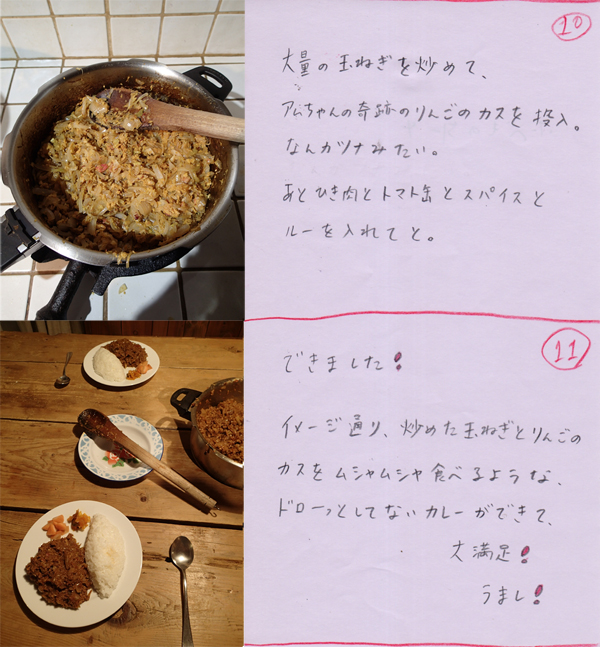 10
大量の玉ねぎを炒めて、
アムちゃんの奇跡のりんごのカスを投入。
なんかツナみたい。
あとひき肉とトマト缶とスパイスと
ルーを入れてと。
11
できました!
イメージ通り、炒めた玉ねぎとりんごの
カスをムシャムシャ食べるような、
ドローっとしてないカレーができて、
大満足!
うまし!